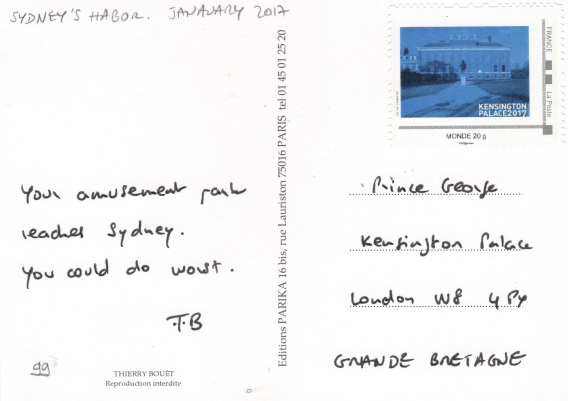 SYDNEY'S HABOR. JANAVARY 2017
Your amusement park
reaches Sydney.
You could do worst.
T.B
99
THIERRY BOUËT
Reproduction interdite
Editions PARIKA 16 bis, rue Lauriston 75016 PARIS tel 01 45 01 25 20
KENSINGTON
PALACE2017
FRANCE
La Poste
MONDE 20 g
Prince George
Kensington Palace
London W8 4 Py
GRANDE BRETAGNE